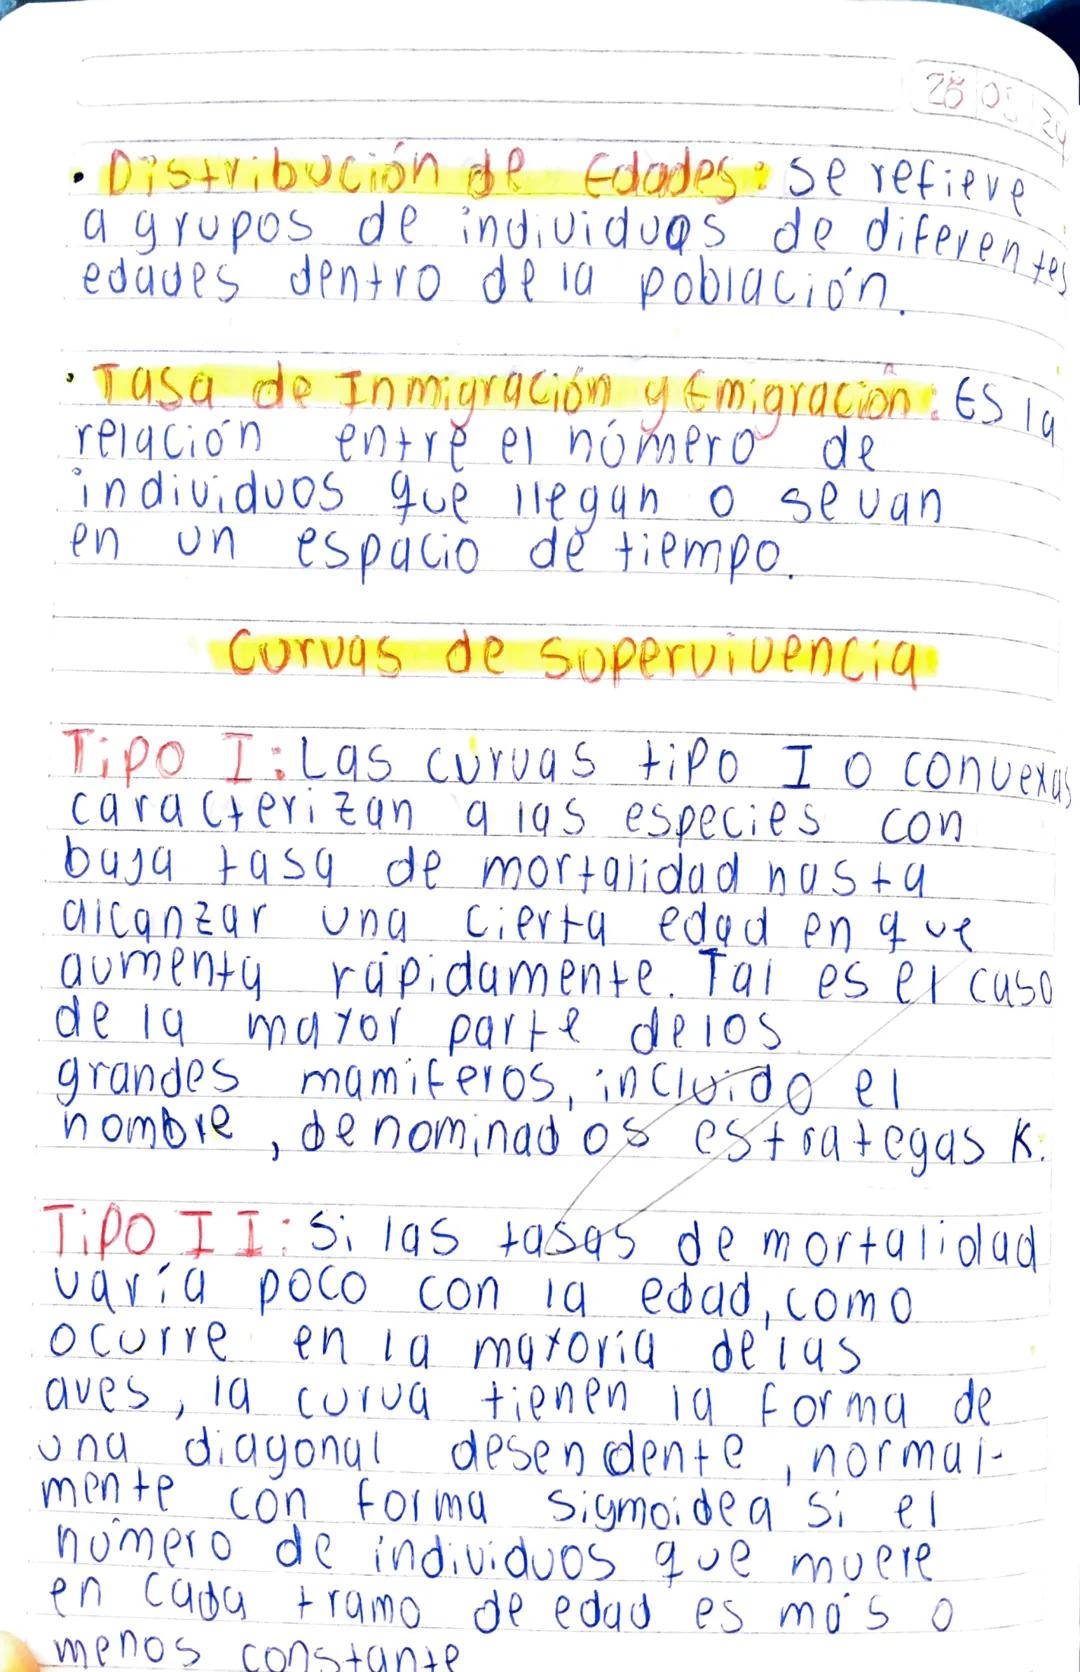 · Distribución de Edades: se refiere
a grupos de individuos de diferentes
edades dentro de la población.
· Tasa de Inmigración y Emigración: Es la
relación entre el número de
individuos que llegan o se van
en un espacio de tiempo.
Curvas de supervivencia
Tipo I: Las curvas tipo I o convexas
caracterizan a las especies con
baja tasa de mortalidad hasta
alcanzar una cierta edad en que
aumenta rápidamente. Tal es el caso
de la mayor parte de los
grandes mamiferos, incluido el
hombre, denominados estrategas K.
Tipo II: Si las tasas de mortalidad
varía poco con la edad, como
ocurre en la mayoria de las
aves, la curva tienen la forma de
una diagonal desendente, normal-
mente con forma sigmoidea si el
número de individuos que muere
en cada tramo de edad es más o
menos constante